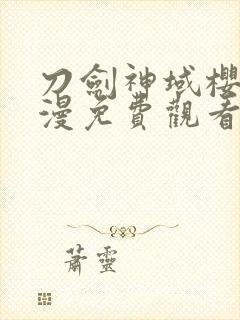 刀劍神域櫻
漫免費觀看
蕭靈